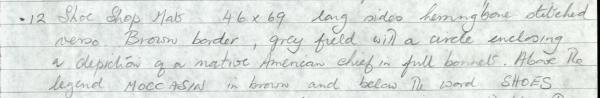 •12 Shoe Shop Mats 46 x 69 long sides herringbone stitched
verso Brown border, grey field with a circle enclosing
a depiction of a native American chief in full bonnet. Above the
legend MOCCASIN in brown and below the word SHOES